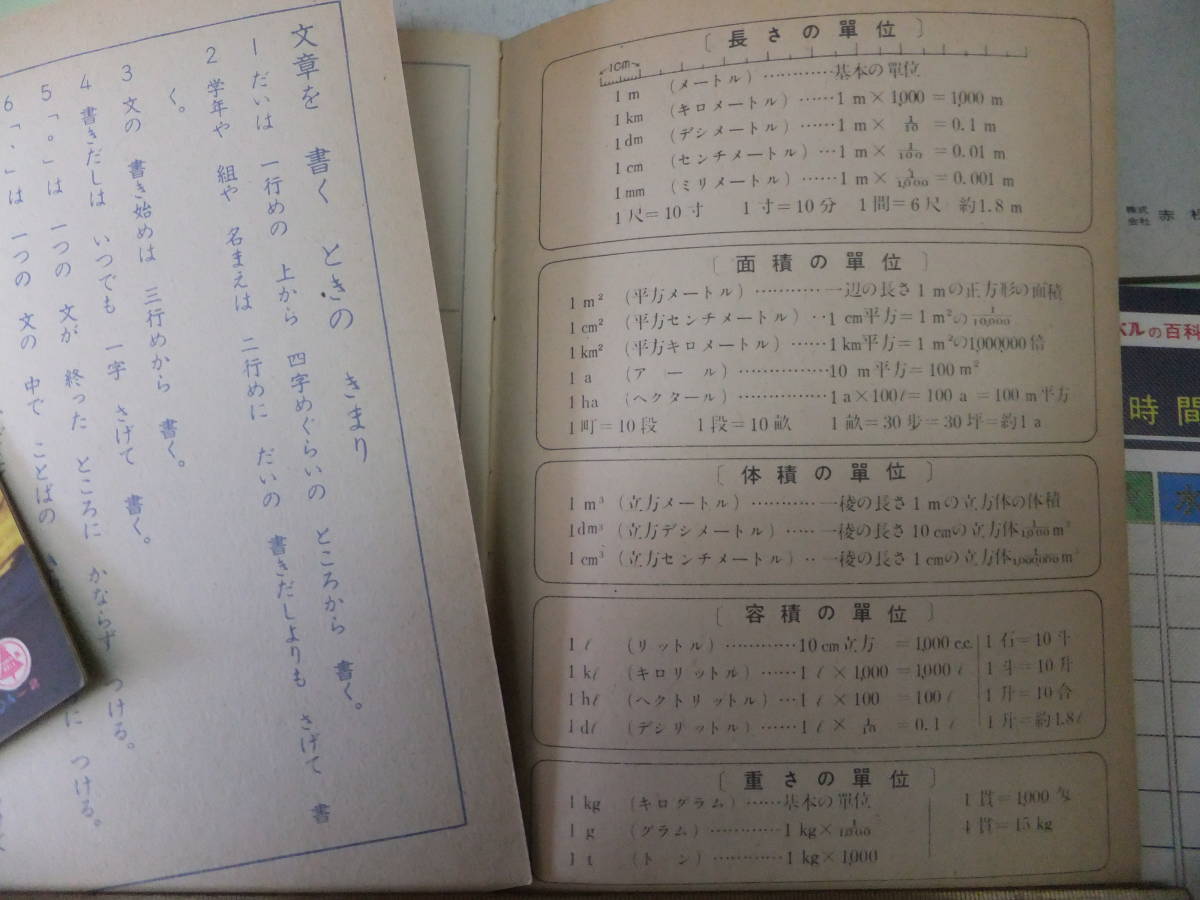 文章を 書く ときの きまり
1 だいは 一行めの 上から 四字めぐらいの ところから 書く。
2 学年や 組や 名まえは 二行めに だいの 書きだしよりも さげて 書
く。
3 文の 書き始めは 三行めから 書く。
4 書きだしは いつでも 一字 さげて 書く。
5 「。」は 一つの 文が 終った ところに かならず つける。
6 「、」は 一つの 文の 中で ことばの
に つける。
〔長さの單位〕
1cm
1m (メートル)…………基本の單位
1km (キロメートル)……1m×1,000=1,000m
1dm (デシメートル)……1m×1/10=0.1m
1cm (センチメートル)…1m×1/100=0.01m
1mm (ミリメートル)……1m×1/1,000=0.001m
1尺=10寸 1寸=10分 1間=6尺 約1.8m
〔面積の單位〕
1m² (平方メートル)…………一辺の長さ1mの正方形の面積
1cm² (平方センチメートル)‥1cm平方=1m²の1/10,000
1km² (平方キロメートル)……1km平方=1m²の1,000,000倍
1a (アール)……………10m平方=100m²
1ha (ヘクタール)……………1a×100ℓ=100a=100m平方
1町=10段 1段=10畝 1畝=30歩=30坪=約1a
〔体積の單位〕
1m³ (立方メートル)…………一稜の長さ1mの立方体の体積
1dm³ (立方デシメートル)……一稜の長さ10cmの立方体1/1,000m³
1cm³ (立方センチメートル)‥一稜の長さ1cmの立方体1/1,000,000m³
〔容積の單位〕
1ℓ (リットル)…………10cm立方=1,000c.c. 1石=10斗
1kℓ (キロリットル)……1ℓ×1,000=1,000ℓ 1斗=10升
1hℓ (ヘクトリットル)…1ℓ×100=100ℓ 1升=10合
1dℓ (デシリットル)……1ℓ×1/10=0.1ℓ 1升=約1.8ℓ
〔重さの單位〕
1kg (キログラム)……基本の單位 1貫=1,000匁
1g (グラム)…………1kg×1/1,000 4貫=15kg
1t (トン)…………1kg×1,000
株式
会社 赤
ベルの百科
時間
水